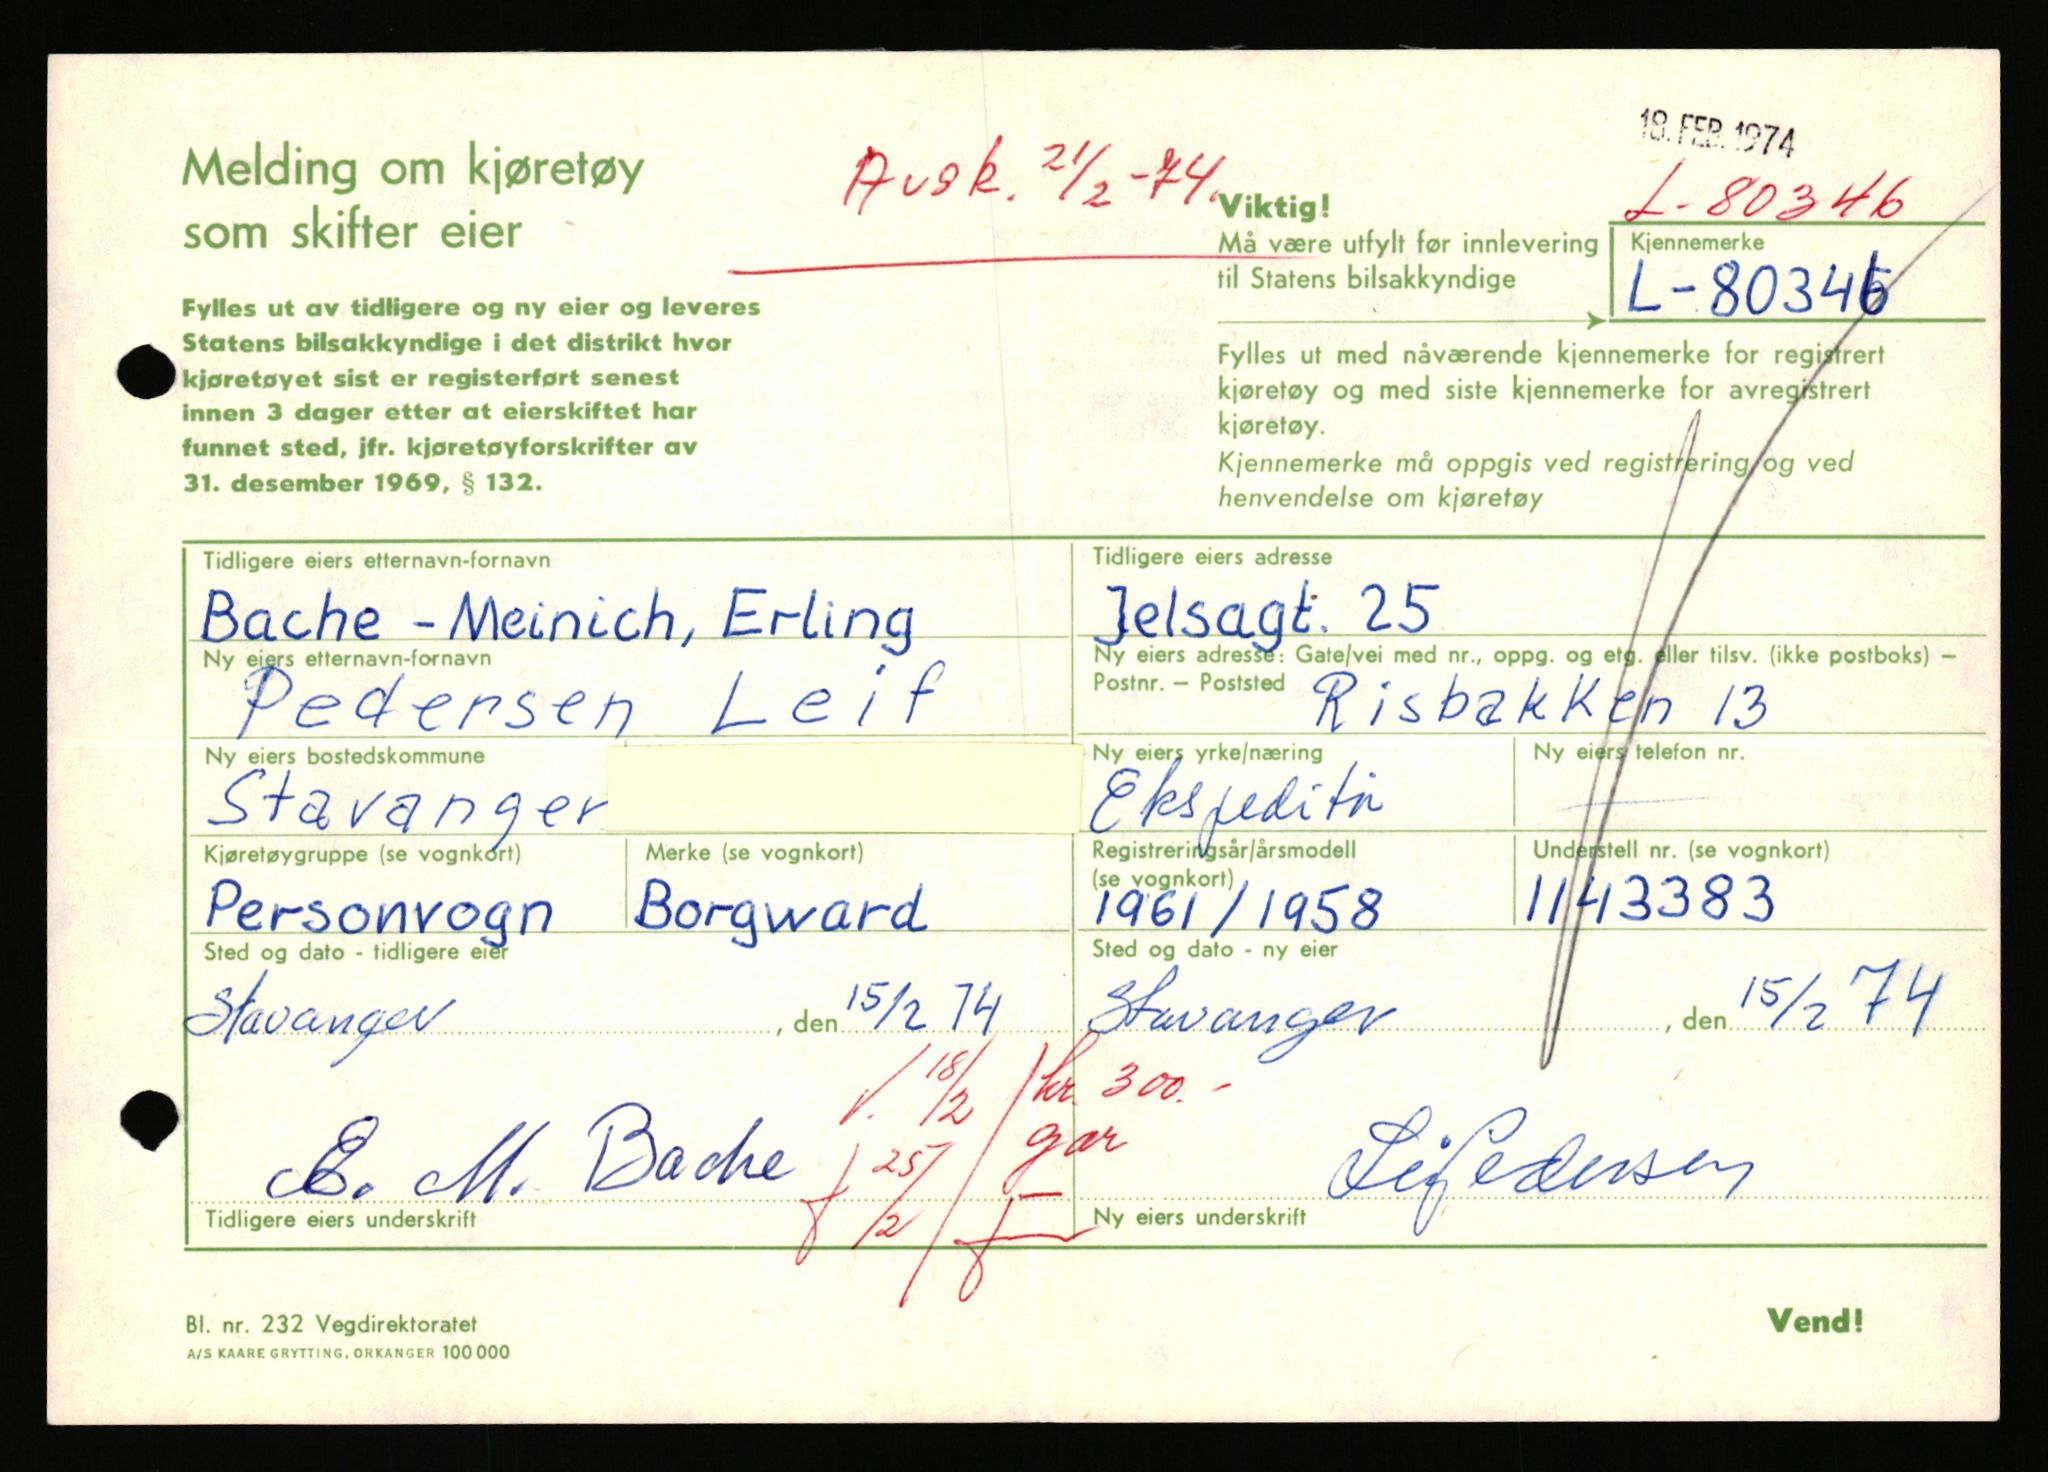 18. FEB. 1974
Melding om kjøretøy
som skifter eier
Avsk. 21/2 -74.
L-80346
Viktig!
Må være utfylt før innlevering
til Statens bilsakkyndige
Kjennemerke
L-80346
Fylles ut av tidligere og ny eier og leveres
Statens bilsakkyndige i det distrikt hvor
kjøretøyet sist er registerført senest
innen 3 dager etter at eierskiftet har
funnet sted, jfr. kjøretøyforskrifter av
31. desember 1969, § 132.
Fylles ut med nåværende kjennemerke for registrert
kjøretøy og med siste kjennemerke for avregistrert
kjøretøy.
Kjennemerke må oppgis ved registrering og ved
henvendelse om kjøretøy
Tidligere eiers etternavn-fornavn
Bache - Meinich, Erling
Tidligere eiers adresse
Jelsagt. 25
Ny eiers etternavn-fornavn
Pedersen Leif
Ny eiers adresse: Gate/vei med nr., oppg. og etg. eller tilsv. (ikke postboks) –
Postnr. – Poststed Risbakken 13
Ny eiers bostedskommune
Stavanger
Ny eiers yrke/næring
Ekspeditør
Ny eiers telefon nr.
—
Kjøretøygruppe (se vognkort)
Personvogn
Merke (se vognkort)
Borgward
Registreringsår/årsmodell
(se vognkort)
1961 / 1958
Understell nr. (se vognkort)
1143383
Sted og dato - tidligere eier
Stavanger, den 15/2 74
Sted og dato - ny eier
Stavanger, den 15/2 74
V. 18/2
kr. 300.-
gar
25/2
E. M. Bache
Tidligere eiers underskrift
Leif Pedersen
Ny eiers underskrift
Bl. nr. 232 Vegdirektoratet
A/S KAARE GRYTTING, ORKANGER 100 000
Vend!